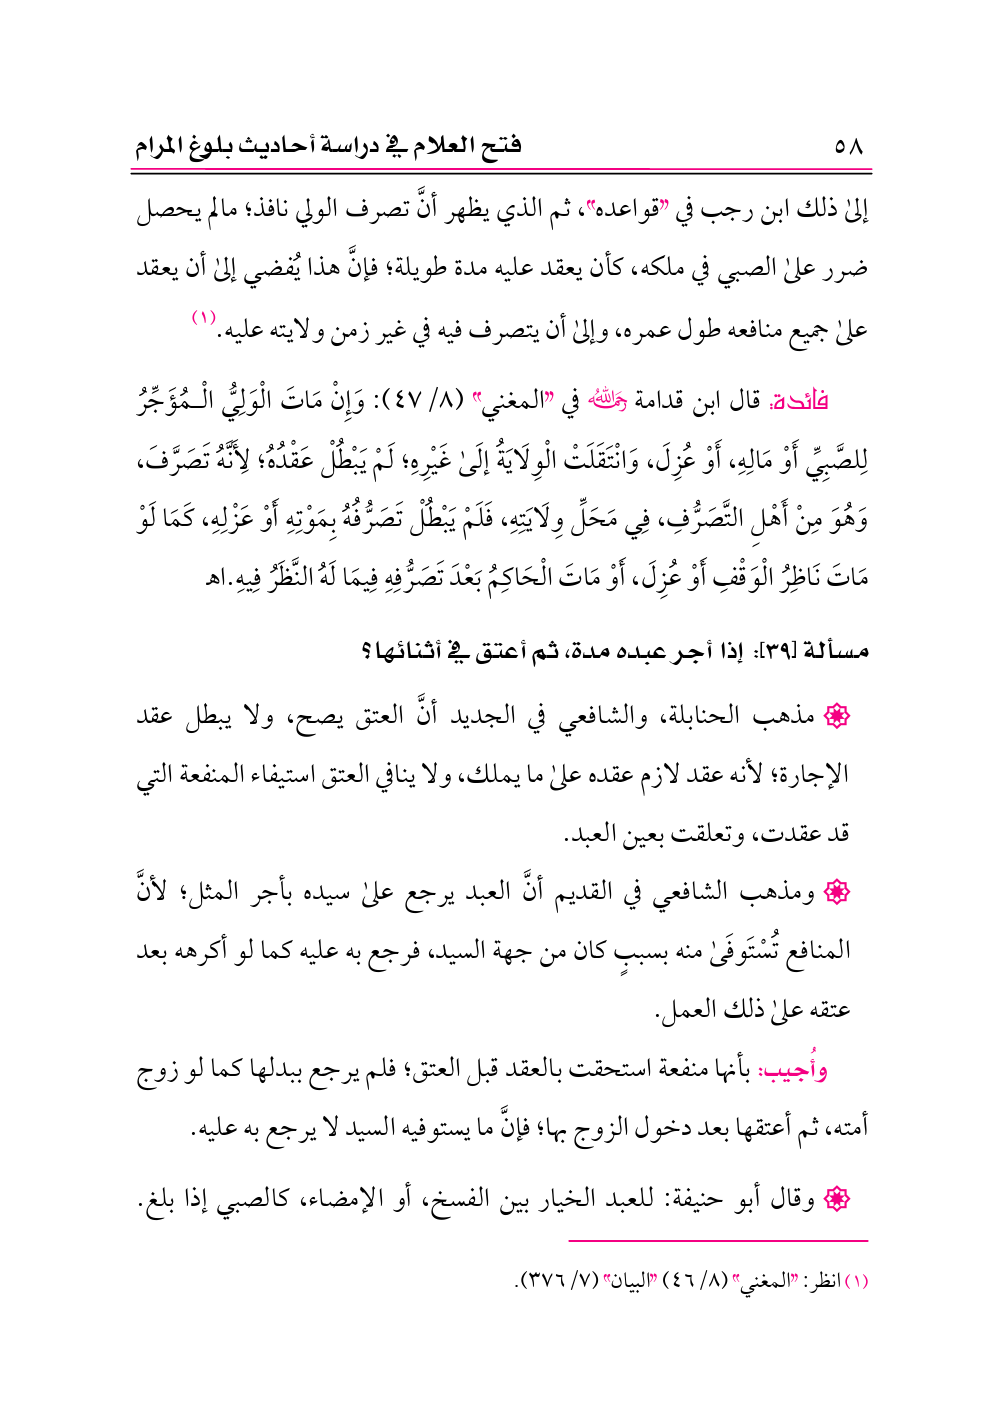 ٥٨ فتح العلام في دراسة أحاديث بلوغ المرام
إلىٰ ذلك ابن رجب في "قواعده"، ثم الذي يظهر أنَّ تصرف الولي نافذ؛ مالم يحصل
ضرر علىٰ الصبي في ملكه، كأن يعقد عليه مدة طويلة؛ فإنَّ هذا يُفضي إلىٰ أن يعقد
علىٰ جميع منافعه طول عمره، وإلىٰ أن يتصرف فيه في غير زمن ولايته عليه.(١)
فائدة: قال ابن قدامة رحمه الله في "المغني" (٨/ ٤٧): وَإِنْ مَاتَ الْوَلِيُّ الْـمُؤَجِّرُ
لِلصَّبِيِّ أَوْ مَالِهِ، أَوْ عُزِلَ، وَانْتَقَلَتْ الْوِلَايَةُ إلَىٰ غَيْرِهِ؛ لَمْ يَبْطُلْ عَقْدُهُ؛ لِأَنَّهُ تَصَرَّفَ،
وَهُوَ مِنْ أَهْلِ التَّصَرُّفِ، فِي مَحَلِّ وِلَايَتِهِ، فَلَمْ يَبْطُلْ تَصَرُّفُهُ بِمَوْتِهِ أَوْ عَزْلِهِ، كَمَا لَوْ
مَاتَ نَاظِرُ الْوَقْفِ أَوْ عُزِلَ، أَوْ مَاتَ الْحَاكِمُ بَعْدَ تَصَرُّفِهِ فِيمَا لَهُ النَّظَرُ فِيهِ.اهـ
مسألة [٣٩]: إذا أجر عبده مدة، ثم أعتق في أثنائها؟
مذهب الحنابلة، والشافعي في الجديد أنَّ العتق يصح، ولا يبطل عقد
الإجارة؛ لأنه عقد لازم عقده علىٰ ما يملك، ولا ينافي العتق استيفاء المنفعة التي
قد عقدت، وتعلقت بعين العبد.
ومذهب الشافعي في القديم أنَّ العبد يرجع علىٰ سيده بأجر المثل؛ لأنَّ
المنافع تُسْتَوفَىٰ منه بسببٍ كان من جهة السيد، فرجع به عليه كما لو أكرهه بعد
عتقه علىٰ ذلك العمل.
وأُجيب: بأنها منفعة استحقت بالعقد قبل العتق؛ فلم يرجع ببدلها كما لو زوج
أمته، ثم أعتقها بعد دخول الزوج بها؛ فإنَّ ما يستوفيه السيد لا يرجع به عليه.
وقال أبو حنيفة: للعبد الخيار بين الفسخ، أو الإمضاء، كالصبي إذا بلغ.
(١) انظر: "المغني" (٨/ ٤٦) "البيان" (٧/ ٣٧٦).